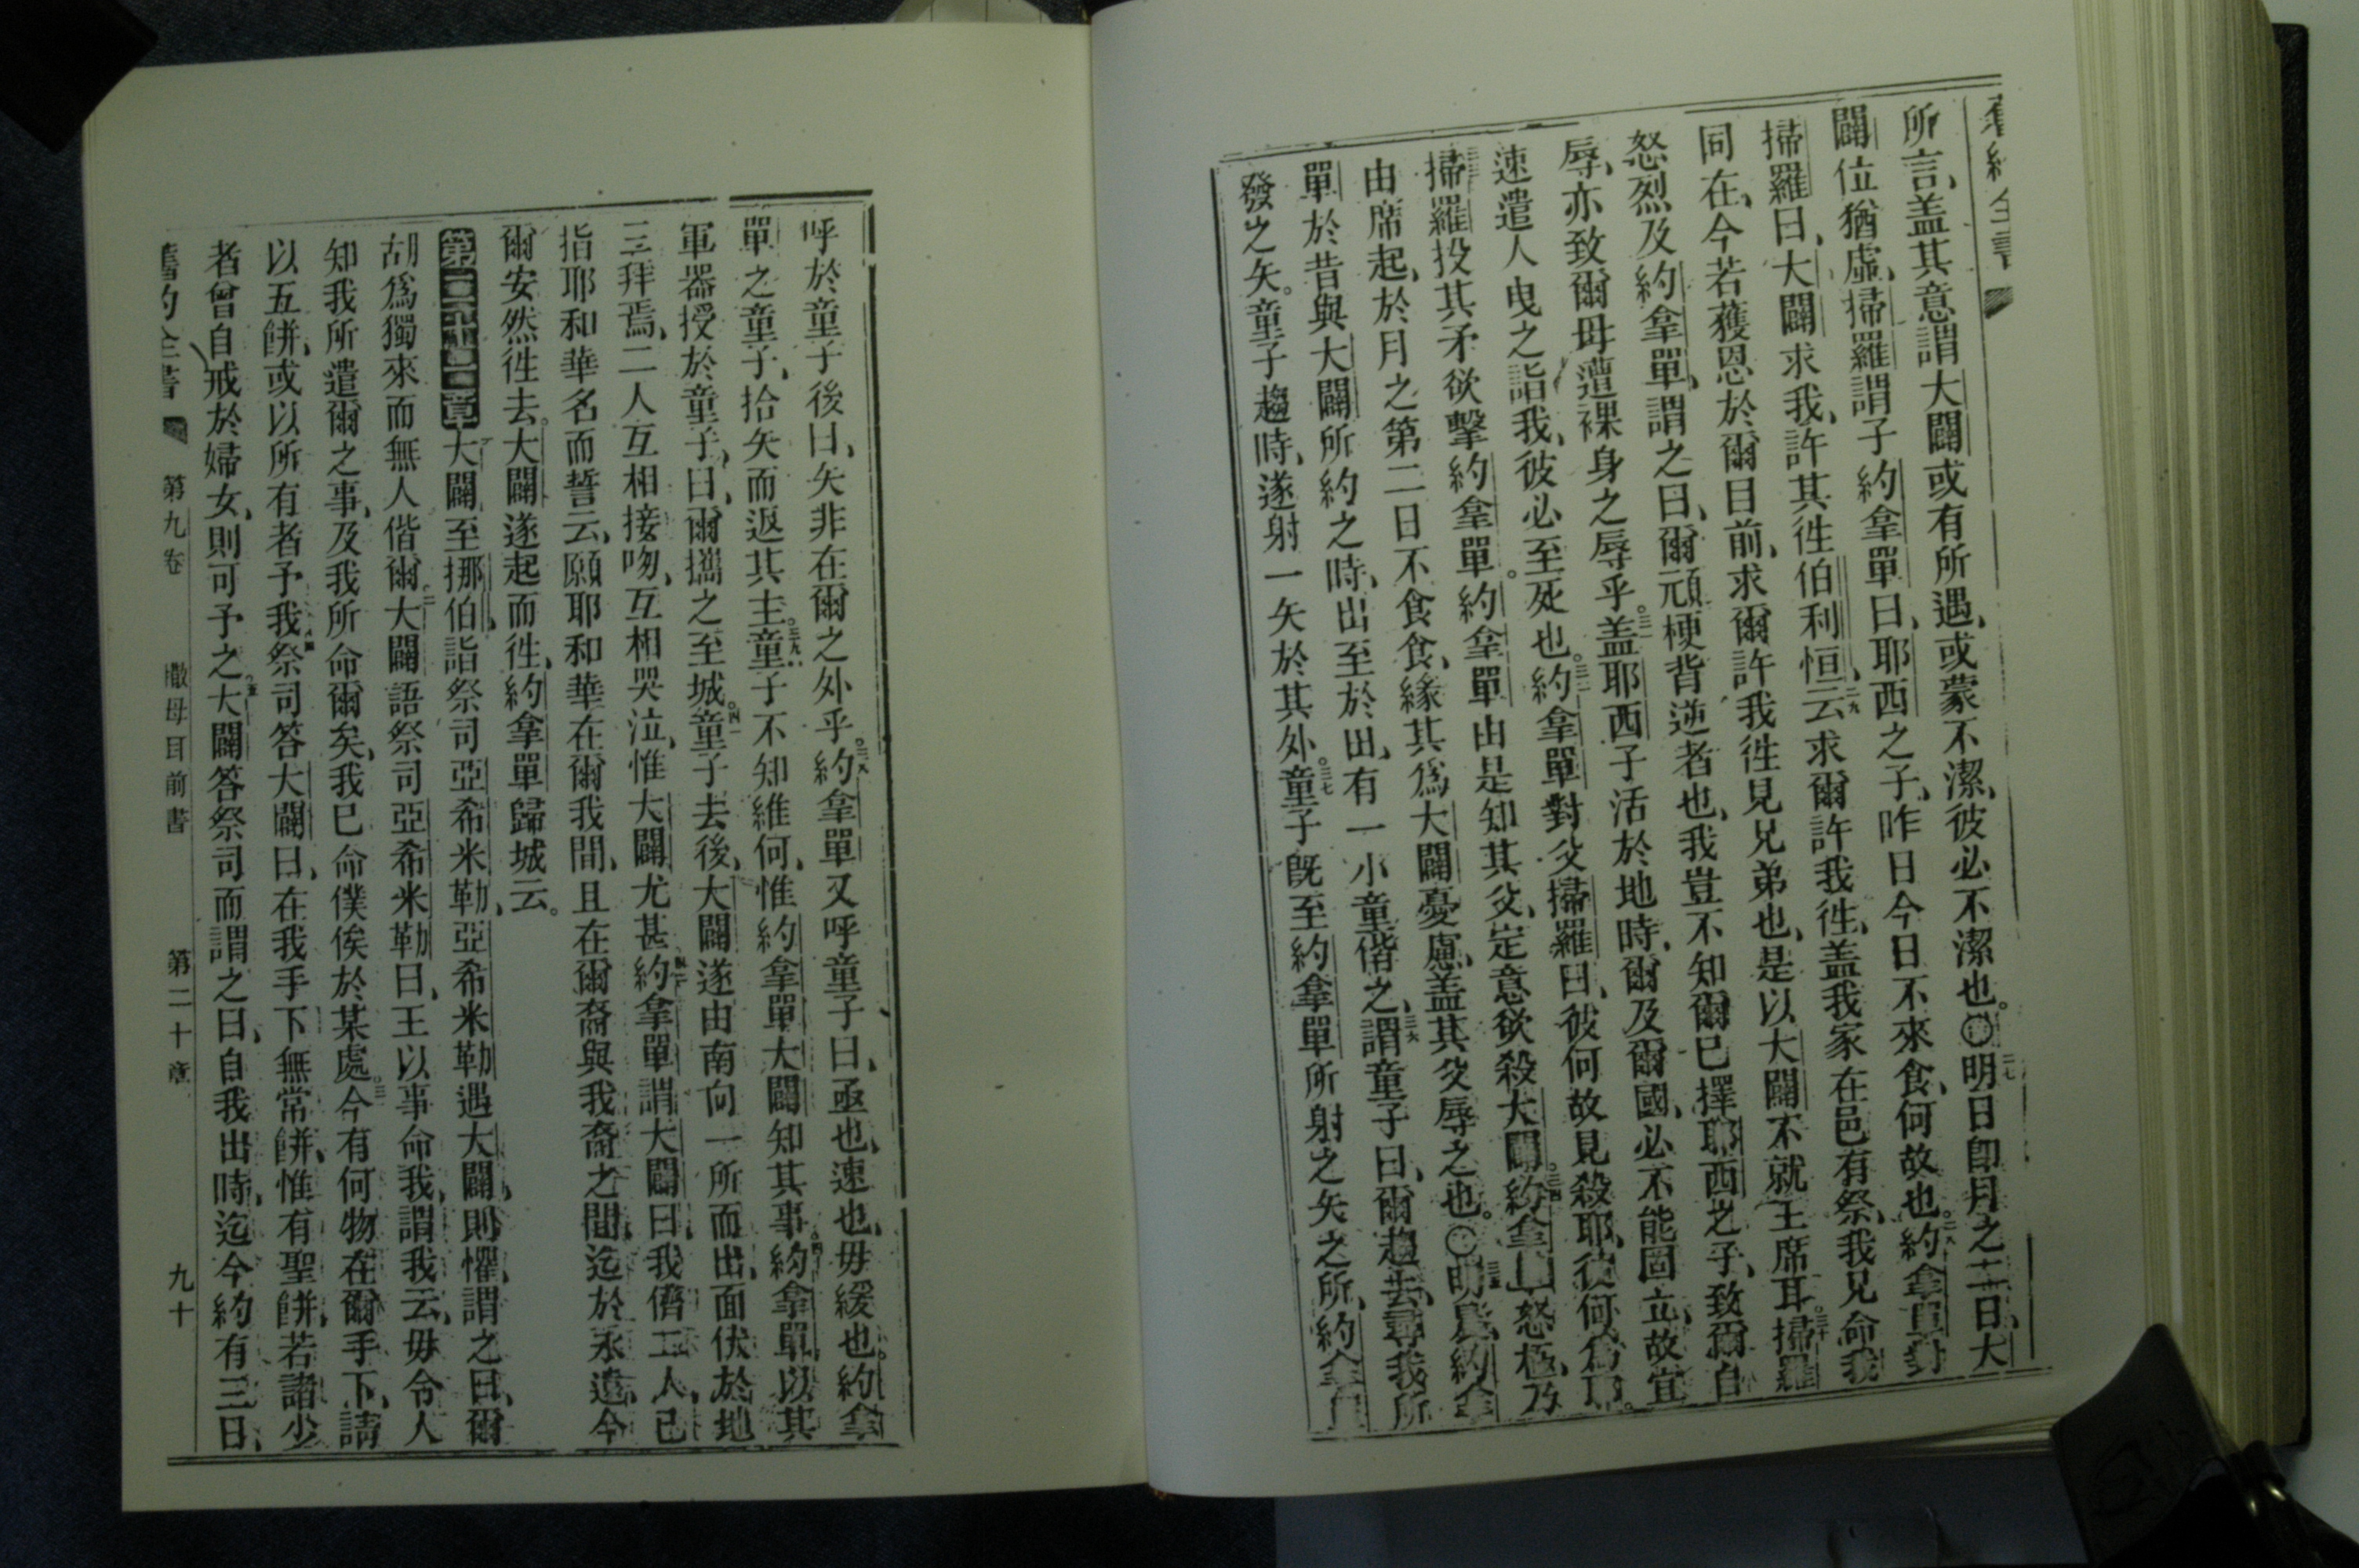 舊約全書
所言、盖其意謂大闢或有所遇、或蒙不潔、彼必不潔也。〇二七明日卽月之二日、大
闢位猶虛、掃羅謂子約拿單曰、耶西之子、昨日今日不來食、何故也。二八約拿單對
掃羅曰、大闢求我、許其徃伯利恒、二九云求爾許我徃、盖我家在邑有祭、我兄命我
同在、今若獲恩於爾目前、求爾許我徃見兄弟也、是以大闢不就王席耳。三十掃羅
怒烈及約拿單、謂之曰、爾頑梗背逆者也、我豈不知爾已擇耶西之子、致爾自
辱、亦致爾母遭裸身之辱乎。三一盖耶西子活於地時、爾及爾國、必不能固立、故宜
速遣人曳之詣我、彼必至死也。三二約拿單對父掃羅曰、彼何故見殺耶、彼何爲耶。
掃羅投其矛欲擊約拿單。約拿單由是知其父、定意欲殺大闢。三四約拿單怒極、乃
由席起、於月之第二日不食食、緣其爲大闢憂慮、盖其父辱之也。〇三五明晨、約拿
單於昔與大闢所約之時、出至於田、有一小童偕之、三六謂童子曰、爾趨去、尋我所
發之矢。童子趨時、遂射一矢於其外。三七童子旣至約拿單所射之矢之所、約拿單
呼於童子後曰、矢非在爾之外乎。三八約拿單又呼童子曰、亟也、速也、毋緩也。約拿
單之童子、拾矢而返其主。三九童子不知維何、惟約拿單大闢知其事。四十約拿單、以其
軍器授於童子、曰、爾攜之至城。四一童子去後、大闢遂由南向一所而出、面伏於地
三拜焉、二人互相接吻、互相哭泣、惟大闢尤甚。四二約拿單謂大闢曰、我儕二人、已
指耶和華名而誓云、願耶和華在爾我間、且在爾裔與我裔之間、迄於永遠、今
爾安然徃去。大闢遂起而徃、約拿單歸城云。
第二十一章大闢至挪伯、詣祭司亞希米勒、亞希米勒遇大闢、則懼、謂之曰、爾
胡爲獨來而無人偕爾。二大闢語祭司亞希米勒曰、王以事命我、謂我云、毋令人
知我所遣爾之事、及我所命爾矣、我已命僕俟於某處。三今有何物在爾手下、請
以五餠、或以所有者予我。四祭司答大闢曰、在我手下無常餠、惟有聖餠、若諸少
者曾自戒於婦女、則可予之。五大闢答祭司而謂之曰、自我出時、迄今約有三日、
舊約全書 第九卷 撒母耳前書 第二十章 九十